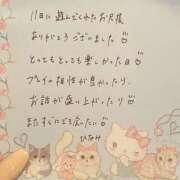 11日に遊んでくれたお兄様
ありがとうございました
とってもとっても楽しかった日
プレイの相性が良かったり、
お話が盛り上がったり
またすぐにでも会いたい
ひなみ